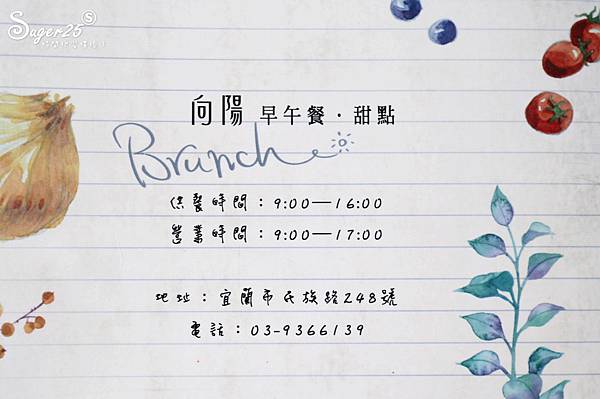 Suger25 S
向陽 早午餐・甜點
Brunch
供餐時間：9:00—16:00
營業時間：9:00—17:00
地址：宜蘭市民族路248號
電話：03-9366139